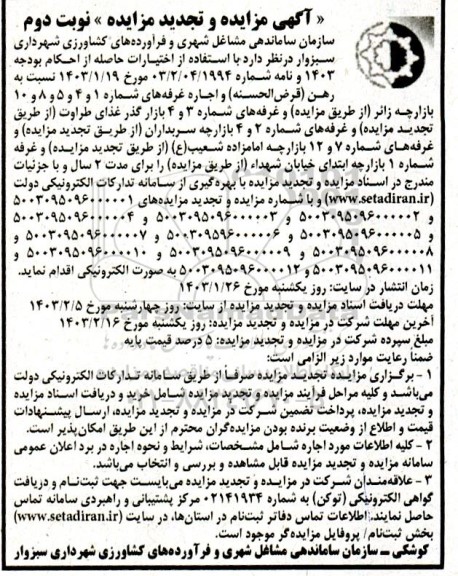 « آگهی مزایده و تجدید مزایده » نوبت دوم
سازمان ساماندهی مشاغل شهری و فرآورده‌های کشاورزی شهرداری
سبزوار درنظر دارد با استفاده از اختیارات حاصله از احکام بودجه
۱۴۰۳ و نامه شماره ۰۳/۲/۰۴/۱۹۹۴ مورخ ۱۴۰۳/۱/۱۹ نسبت به
رهن (قرض‌الحسنه) و اجاره غرفه‌های شماره ۱ و ۴ و ۵ و ۸ و ۱۰
بازارچه زائر (از طریق مزایده) و غرفه‌های شماره ۳ و ۴ بازار گذر غذای طراوت (از طریق
تجدید مزایده) و غرفه‌های شماره ۲ و ۴ بازارچه سربداران (از طریق تجدید مزایده) و
غرفه‌های شماره ۷ و ۱۲ بازارچه امامزاده شعیب(ع) (از طریق تجدید مزایده) و غرفه
شماره ۱ بازارچه ابتدای خیابان شهداء (از طریق مزایده) را برای مدت ۲ سال و با جزئیات
مندرج در اسناد مزایده و تجدید مزایده با بهره‌گیری از سامانه تدارکات الکترونیکی دولت
(www.setadiran.ir) و با شماره مزایده و تجدید مزایده‌های ۵۰۰۳۰۹۵۰۹۶۰۰۰۰۰۱
و ۵۰۰۳۰۹۵۰۹۶۰۰۰۰۰۲ و ۵۰۰۳۰۹۵۰۹۶۰۰۰۰۰۳ و ۵۰۰۳۰۹۵۰۹۶۰۰۰۰۰۴ و
۵۰۰۳۰۹۵۰۹۶۰۰۰۰۰۵ و ۵۰۰۳۰۹۵۰۹۶۰۰۰۰۰۶ و ۵۰۰۳۰۹۵۰۹۶۰۰۰۰۰۷ و
۵۰۰۳۰۹۵۰۹۶۰۰۰۰۰۸ و ۵۰۰۳۰۹۵۰۹۶۰۰۰۰۰۹ و ۵۰۰۳۰۹۵۰۹۶۰۰۰۰۱۰ و
۵۰۰۳۰۹۵۰۹۶۰۰۰۰۱۱ و ۵۰۰۳۰۹۵۰۹۶۰۰۰۰۱۲ به صورت الکترونیکی اقدام نماید.
زمان انتشار در سایت: روز یکشنبه مورخ ۱۴۰۳/۱/۲۶
مهلت دریافت اسناد مزایده و تجدید مزایده از سایت: روز چهارشنبه مورخ ۱۴۰۳/۲/۵
آخرین مهلت شرکت در مزایده و تجدید مزایده: روز یکشنبه مورخ ۱۴۰۳/۲/۱۶
مبلغ سپرده شرکت در مزایده و تجدید مزایده: ۵ درصد قیمت پایه
ضمناً رعایت موارد زیر الزامی است:
۱ - برگزاری مزایده تجدید مزایده صرفاً از طریق سامانه تدارکات الکترونیکی دولت
می‌باشد و کلیه مراحل فرآیند مزایده و تجدید مزایده شامل خرید و دریافت اسناد مزایده
و تجدید مزایده، پرداخت تضمین شرکت در مزایده و تجدید مزایده، ارسال پیشنهادات
قیمت و اطلاع از وضعیت برنده بودن مزایده‌گران محترم از این طریق امکان‌پذیر است.
۲ - کلیه اطلاعات مورد اجاره شامل مشخصات، شرایط و نحوه اجاره در برد اعلان عمومی
سامانه مزایده و تجدید مزایده قابل مشاهده و بررسی و انتخاب می‌باشد.
۳ - علاقه‌مندان شرکت در مزایده و تجدید مزایده می‌بایست جهت ثبت‌نام و دریافت
گواهی الکترونیکی (توکن) به شماره ۰۲۱۴۱۹۳۴ مرکز پشتیبانی و راهبردی سامانه تماس
حاصل نمایند. اطلاعات تماس دفاتر ثبت‌نام در استان‌ها، در سایت (www.setadiran.ir)
بخش ثبت‌نام/ پروفایل مزایده‌گر موجود است.
کوشکی - سازمان ساماندهی مشاغل شهری و فرآورده‌های کشاورزی شهرداری سبزوار